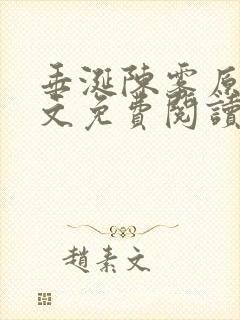 垂涎陳雾原
文免費閱讀
趙素文